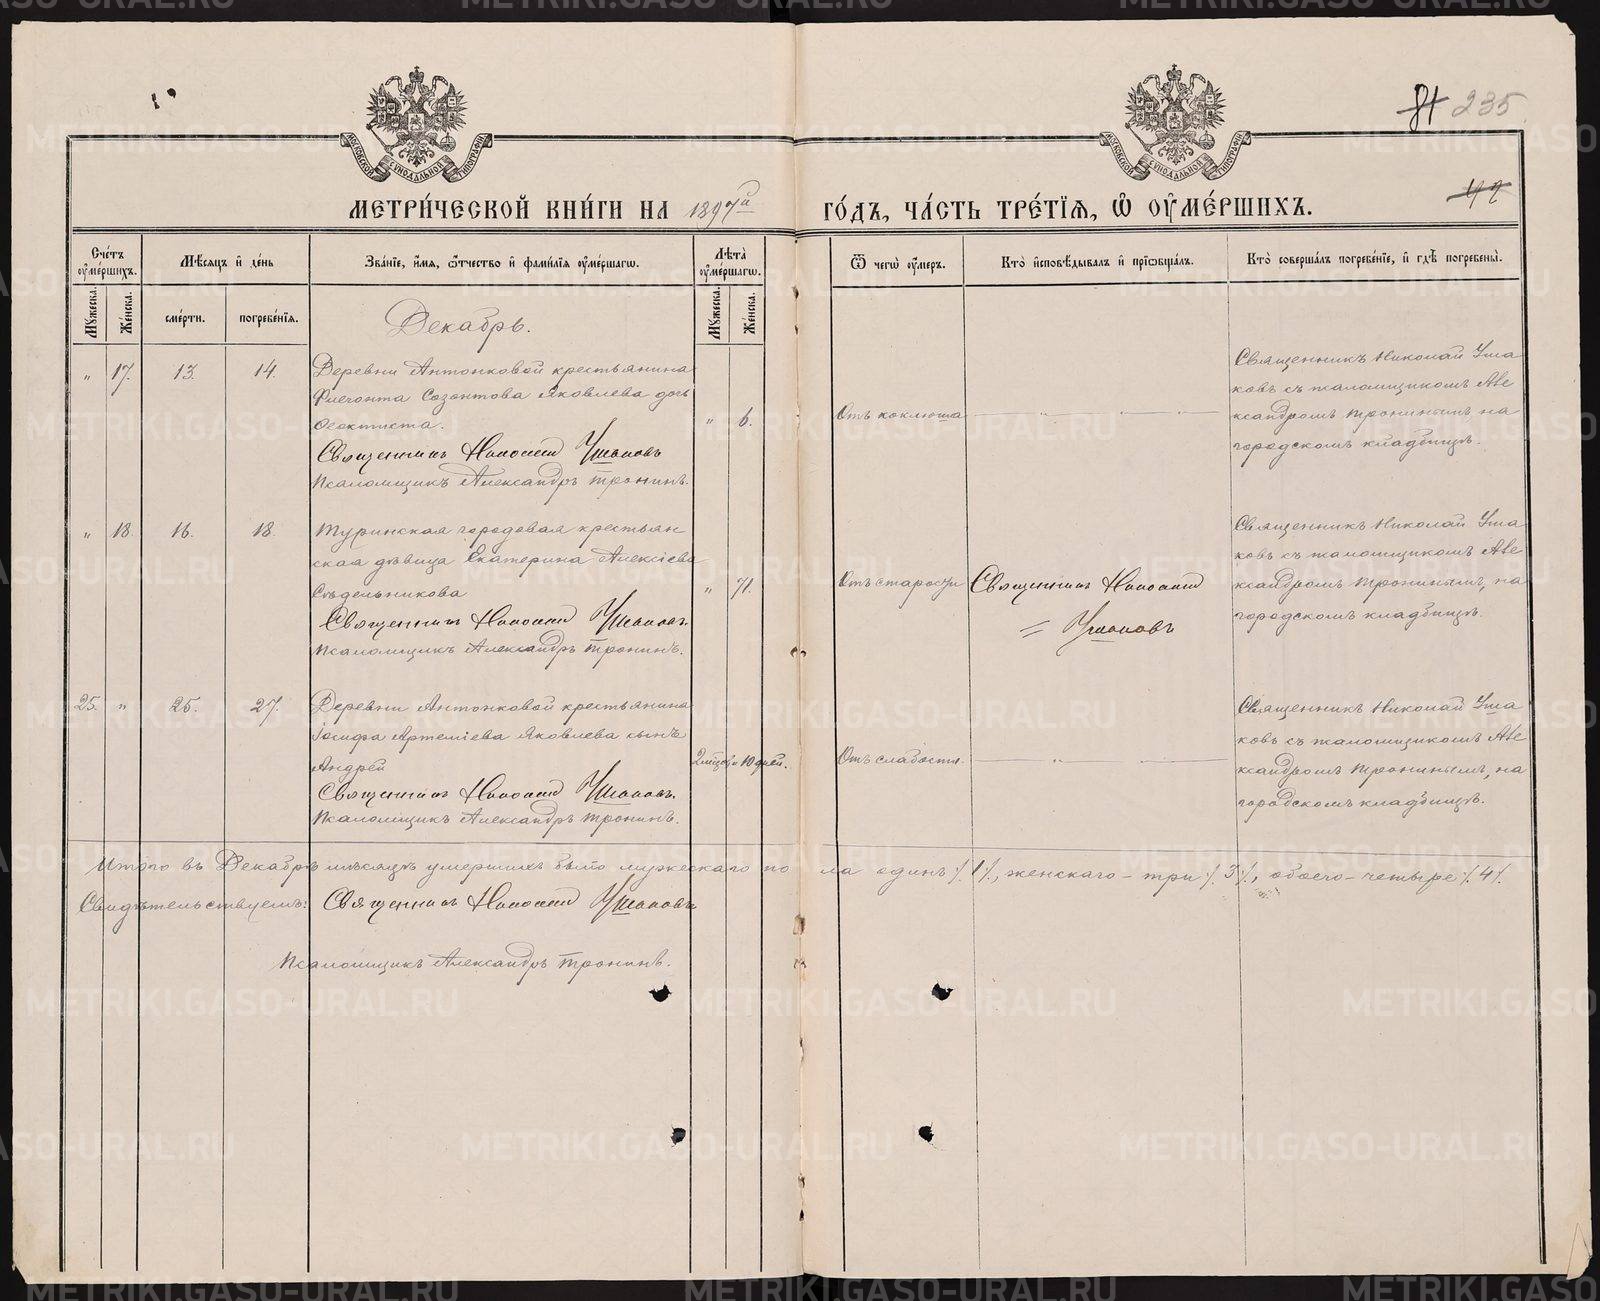 81 235
47
МЕТРИ́ЧЕСКОЙ КНИ́ГИ НА 1897й ГО́ДЪ, ЧА́СТЬ ТРЕ́ТІѦ, Ѡ ОУМЕ́РШИХЪ.
МОСКОВСКОЙ СѴНОДАЛЬНОЙ ТИПОГРАФІИ
МОСКОВСКОЙ СѴНОДАЛЬНОЙ ТИПОГРАФІИ
Сче́тъ оумершихъ.
Мѣсяцъ и де́нь
Зва́ніе, и́мя, ѻтчество и фами́лія оуме́ршагѡ.
Лѣта̀ оуме́ршагѡ.
Ѿ чегѡ̀ оу́меръ.
Кто̀ исповѣ́дывалъ и пріѡбща́лъ.
Кто̀ соверша́лъ погребе́ніе, и гдѣ̀ погребены̀.
Му́жеска.
Же́нска.
сме́рти.
погребе́нія.
Му́жеска.
Же́нска.
Декабрь.
" 17. 13. 14.
Деревни Антонковой крестьянина
Флегонта Созонтова Яковлева дочь
Феоктиста.
Священникъ Николай Ушаковъ
Псаломщикъ Александръ Тронинъ.
" 6.
Отъ коклюша
"
Священникъ Николай Уша
ковъ съ псаломщикомъ Але
ксандромъ Трониным на
городскомъ кладбищѣ.
" 18. 16. 18.
Туринская городовая крестьян
ская дѣвица Екатерина Алексіева
Сѣдельникова
Священникъ Николай Ушаковъ
Псаломщикъ Александръ Тронинъ.
" 71.
Отъ старости
Священникъ Николай
Ушаковъ
Священникъ Николай Уша
ковъ съ псаломщикомъ Але
ксандромъ Тронинымъ, на
городскомъ кладбищѣ.
25. " 25. 27.
Деревни Антонковой крестьянина
Іосифа Артеміева Яковлева сынъ
Андрей
Священникъ Николай Ушаковъ
Псаломщикъ Александръ Тронинъ.
2 мѣсяц. и 10 дней.
Отъ слабости.
"
Священникъ Николай Уша
ковъ съ псаломщикомъ Але
ксандромъ Тронинымъ, на
городскомъ кладбищѣ.
Итого въ Декабрѣ мѣсяцѣ умершихъ было мужескаго пола одинъ /.1/., женскаго – три /.3/., обоего – четыре /.4/.
Свидѣтельствуемъ: Священникъ Николай Ушаковъ
Псаломщикъ Александръ Тронинъ.
METRIKI.GASO-URAL.RU